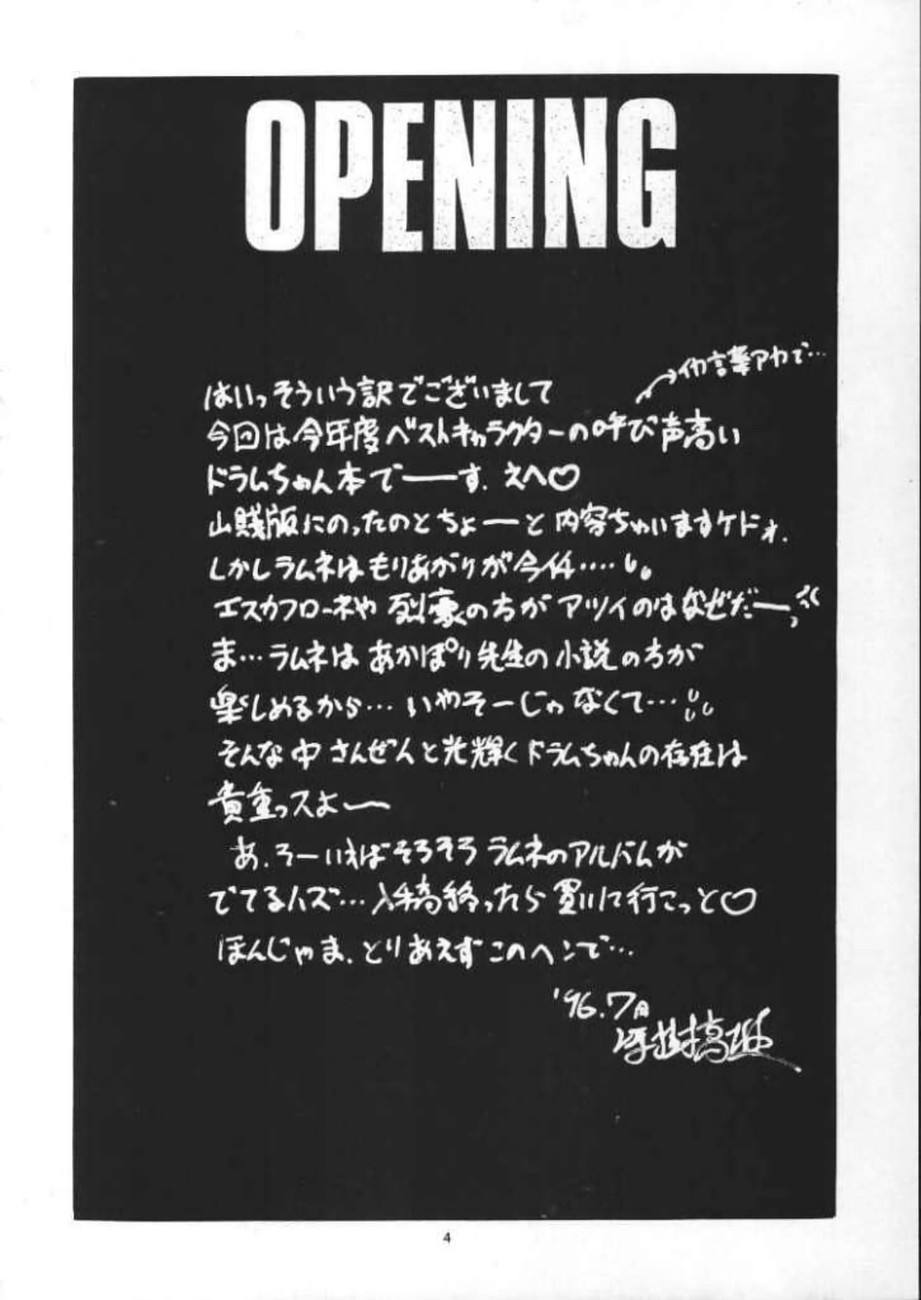 OPENING
はいっそういう訳でございまして
今回は今年度ベストキャラクターの呼び声高い
ドラムちゃん本でーーす。えへ♡
山賊版にのったのとちょーーと内容ちゃいますケドォ.
しかしラムネはもりあがりが今イチ‥‥
エスカフローネや 烈豪の方が アツイのはなぜだーーっ
ま…ラムネは あかほり先生の小説の方が
楽しめるから… いやそーじゃなくて…
そんな中 さんぜんと光輝くドラムちゃんの存在は
貴重っスよー
あ.そーいえばそろそろ ラムネのアルバムが
でてるハズ… 入稿終ったら 買いに行こっと♡
ほんじゃま.とりあえずこのヘンで…
'96.7月
4